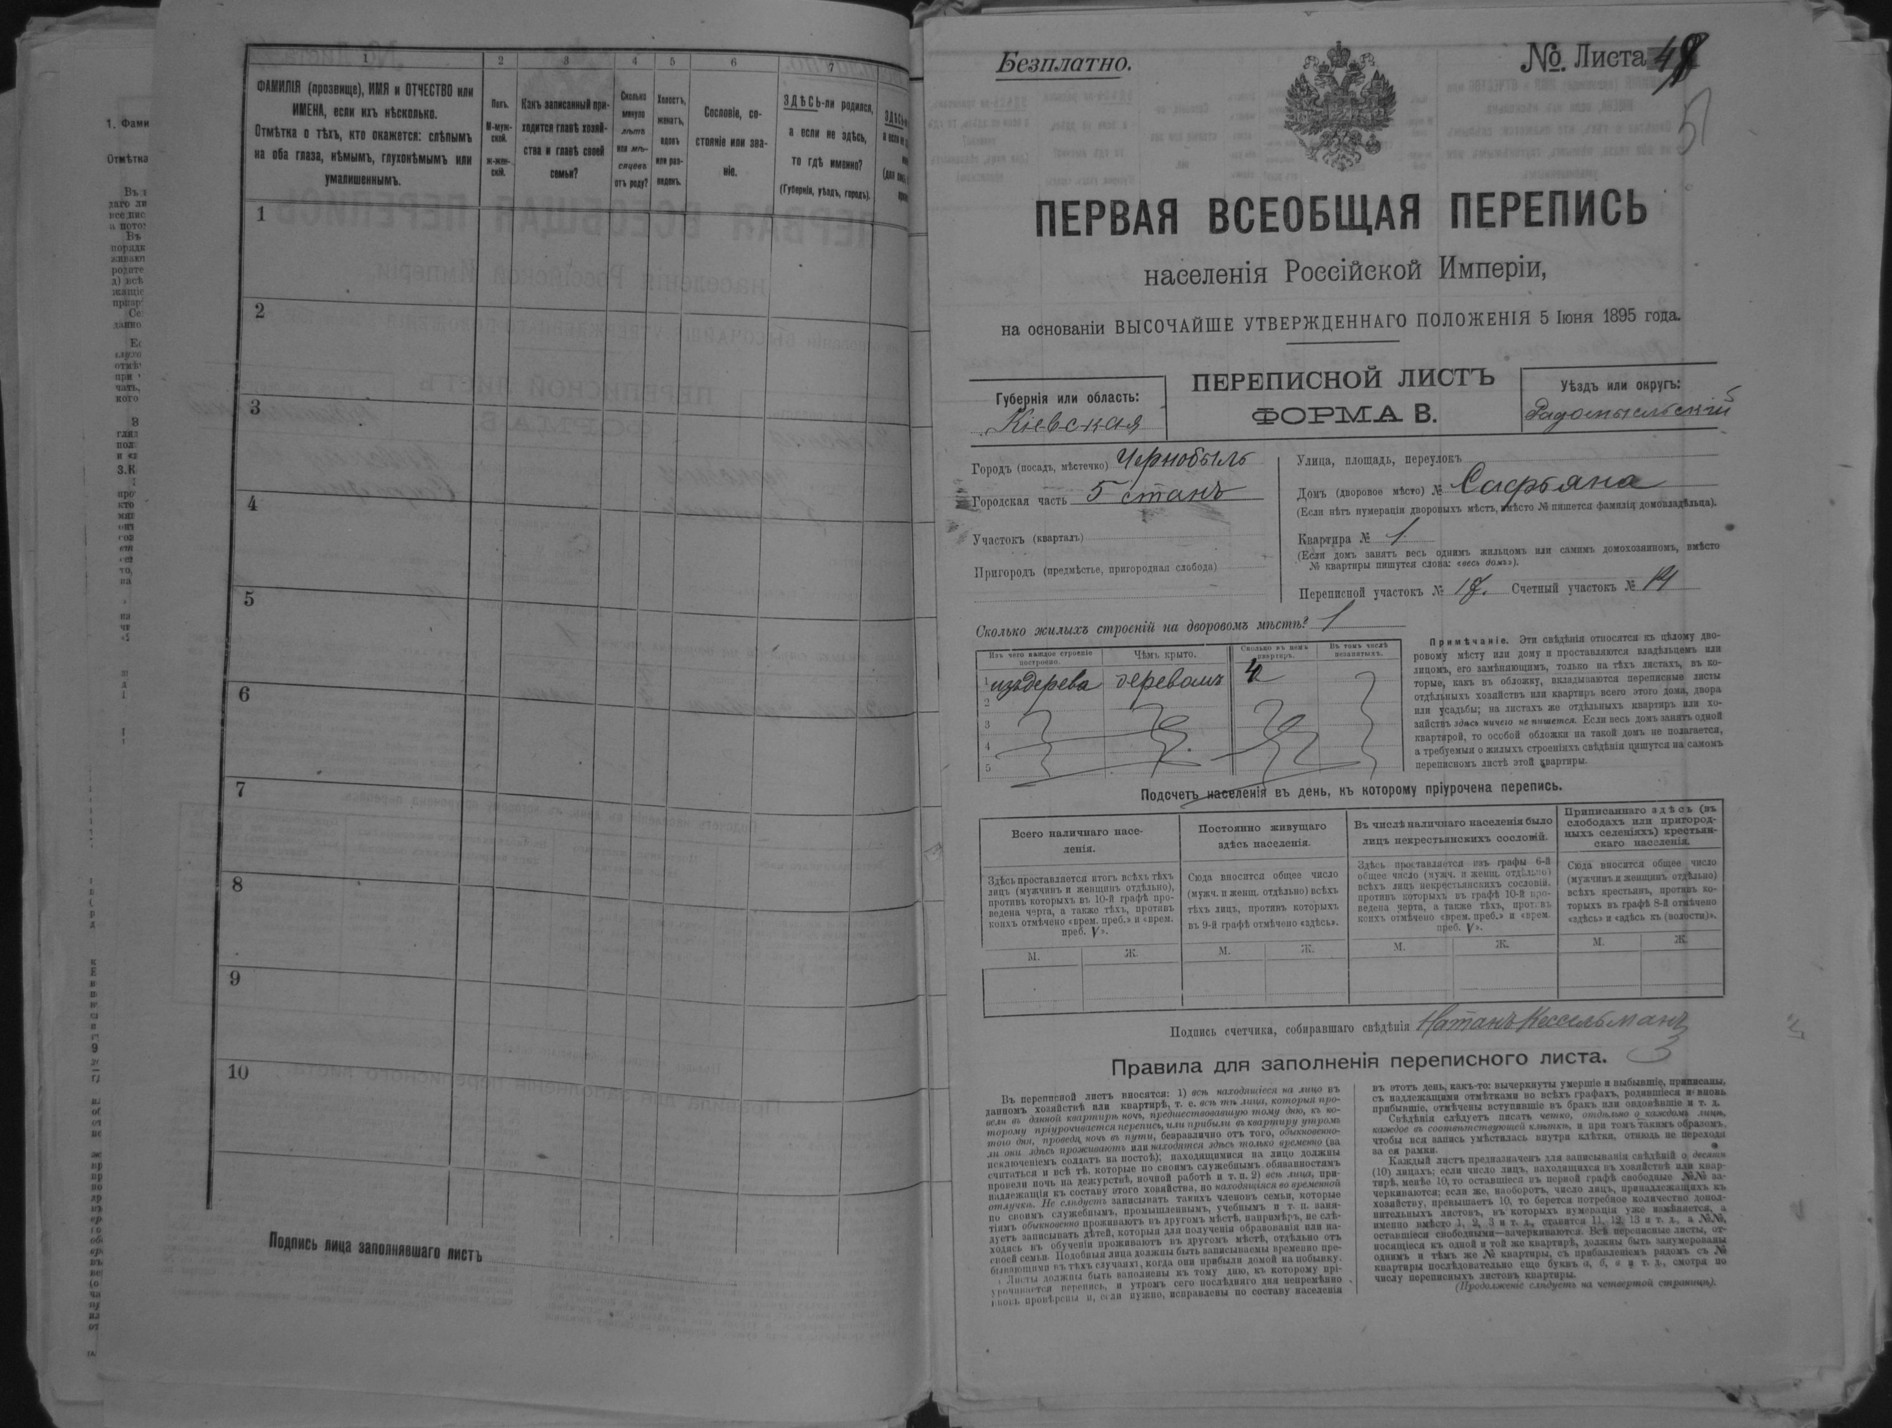 1
ФАМИЛІЯ (прозвище), ИМЯ и ОТЧЕСТВО или
ИМЕНА, если ихъ нѣсколько.
Отмѣтка о тѣхъ, кто окажется: слѣпымъ
на оба глаза, нѣмымъ, глухонѣмымъ или
умалишеннымъ.
2
Полъ.
М-муж-
ской.
ж-жен-
скій.
3
Какъ записанный при-
ходится главѣ хозяй-
ства и главѣ своей
семьи?
4
Сколько
минуло
лѣтъ
или мѣ-
сяцевъ
отъ роду?
5
Холостъ,
женатъ,
вдовъ
или раз-
веденъ.
6
Сословіе, со-
стояніе или зва-
ніе.
7
ЗДѢСЬ-ли родился,
а если не здѣсь,
то гдѣ именно?
(Губернія, уѣздъ, городъ).
1
2
3
4
5
6
7
8
9
10
Подпись лица заполнявшаго листъ
Безплатно.
№. Листа 48
ПЕРВАЯ ВСЕОБЩАЯ ПЕРЕПИСЬ
населенія Россійской Имперіи,
на основаніи ВЫСОЧАЙШЕ УТВЕРЖДЕННАГО ПОЛОЖЕНІЯ 5 Іюня 1895 года.
Губернія или область:
Кіевская
ПЕРЕПИСНОЙ ЛИСТЪ
ФОРМА В.
Уѣздъ или округъ:
Радомысльскій
Городъ (посадъ, мѣстечко) Чернобыль
Городская часть 5 станъ
Участокъ (кварталъ)
Пригородъ (предмѣстье, пригородная слобода)
Улица, площадь, переулокъ
Домъ (дворовое мѣсто) № Сафьяна
(Если нѣтъ нумераціи дворовыхъ мѣстъ, вмѣсто № пишется фамилія домовладѣльца).
Квартира № 1
(Если домъ занятъ весь однимъ жильцомъ или самимъ домохозяиномъ, вмѣсто
№ квартиры пишутся слова: «весь домъ»).
Переписной участокъ № 17. Счетный участокъ № 14
Сколько жилыхъ строеній на дворовомъ мѣстѣ? 1
Изъ чего каждое строеніе
построено.
Чѣмъ крыто.
Сколько въ немъ
квартиръ.
Въ томъ числѣ
незанятыхъ.
1 изъ дерева деревомъ 4
2
3
4
5
Примѣчаніе. Эти свѣдѣнія относятся къ цѣлому дво-
ровому мѣсту или дому и проставляются владѣльцемъ или
лицомъ, его замѣняющимъ, только на тѣхъ листахъ, въ ко-
торые, какъ въ обложку, вкладываются переписные листы
отдѣльныхъ хозяйствъ или квартиръ всего этого дома, двора
или усадьбы; на листахъ же отдѣльныхъ квартиръ или хо-
зяйствъ здѣсь ничего не пишется. Если весь домъ занятъ одной
квартирой, то особой обложки на такой домъ не полагается,
а требуемыя о жилыхъ строеніяхъ свѣдѣнія пишутся на самомъ
переписномъ листѣ этой квартиры.
Подсчетъ населенія въ день, къ которому пріурочена перепись.
Всего наличнаго насе-
ленія.
Здѣсь проставляется итогъ всѣхъ тѣхъ
лицъ (мужчинъ и женщинъ отдѣльно),
противъ которыхъ въ 10-й графѣ про-
ведена черта, а также тѣхъ, противъ
коихъ отмѣчено «врем. преб.» и «врем.
преб. V».
Постоянно живущаго
здѣсь населенія.
Сюда вносится общее число
(мужч. и женщ. отдѣльно) всѣхъ
тѣхъ лицъ, противъ которыхъ
въ 9-й графѣ отмѣчено «здѣсь».
Въ числѣ наличнаго населенія было
лицъ некрестьянскихъ сословій.
Здѣсь проставляется изъ графы 6-й
общее число (мужч. и женщ. отдѣльно)
всѣхъ лицъ некрестьянскихъ сословій,
противъ которыхъ въ графѣ 10-й про-
ведена черта, а также тѣхъ, противъ
коихъ отмѣчено «врем. преб.» и «врем.
преб. V».
Приписаннаго здѣсь (въ
слободахъ или пригород-
ныхъ селеніяхъ) крестьян-
скаго населенія.
Сюда вносится общее число
(мужчинъ и женщинъ отдѣльно)
всѣхъ крестьянъ, противъ ко-
торыхъ въ графѣ 8-й отмѣчено
«здѣсь» и «здѣсь къ (волости)».
М. Ж. М. Ж. М. Ж. М. Ж.
Подпись счетчика, собиравшаго свѣдѣнія Натанъ Кессельманъ
Правила для заполненія переписного листа.
Въ переписной листъ вносятся: 1) всѣ находящіеся на лицо въ
данномъ хозяйствѣ или квартирѣ, т. е. всѣ тѣ лица, которыя про-
вели въ данной квартирѣ ночь, предшествовавшую тому дню, къ ко-
торому пріурочивается перепись, или прибыли въ квартиру утромъ
того дня, проведя ночь въ пути, безразлично отъ того, обыкновенно-
ли они здѣсь проживаютъ или находятся здѣсь только временно (за
исключеніемъ солдатъ на постоѣ); находящимися на лицо должны
считаться и всѣ тѣ, которые по своимъ служебнымъ обязанностямъ
провели ночь на дежурствѣ, ночной работѣ и т. п. 2) всѣ лица, при-
надлежащія къ составу этого хозяйства, но находящіяся во временной
отлучкѣ. Не слѣдуетъ записывать такихъ членовъ семьи, которые
по своимъ служебнымъ, промышленнымъ, учебнымъ и т. п. заня-
тіямъ обыкновенно проживаютъ въ другомъ мѣстѣ, напримѣръ, не слѣ-
дуетъ записывать дѣтей, которыя для полученія образованія или на-
ходясь въ обученіи проживаютъ въ другомъ мѣстѣ, отдѣльно отъ
своей семьи. Подобныя лица должны быть записываемы временно пре-
бывающими въ тѣхъ случаяхъ, когда они прибыли домой на побывку.
Листы должны быть заполнены къ тому дню, къ которому прі-
урочивается перепись, и утромъ сего послѣдняго дня непремѣнно
вновь провѣрены и, если нужно, исправлены по составу населенія
въ этотъ день, какъ-то: вычеркнуты умершіе и выбывшіе, приписаны,
съ надлежащими отмѣтками во всѣхъ графахъ, родившіеся и вновь
прибывшіе, отмѣчены вступившіе въ бракъ или овдовѣвшіе и т. д.
Свѣдѣнія слѣдуетъ писать четко, отдѣльно о каждомъ лицѣ,
каждое въ соотвѣтствующей клѣткѣ, и при томъ такимъ образомъ,
чтобы вся запись умѣстилась внутри клѣтки, отнюдь не переходя
за ея рамки.
Каждый листъ предназначенъ для записыванія свѣдѣній о десяти
(10) лицахъ; если число лицъ, находящихся въ хозяйствѣ или квар-
тирѣ, менѣе 10, то оставшіеся въ первой графѣ свободные №№ за-
черкиваются; если же, наоборотъ, число лицъ, принадлежащихъ къ
хозяйству, превышаетъ 10, то берется потребное количество допол-
нительныхъ листовъ, въ которыхъ нумерація уже измѣняется, а
именно вмѣсто 1, 2, 3 и т. д., ставится 11, 12, 13 и т. д., а №№,
оставшіеся свободными—зачеркиваются. Всѣ переписные листы, от-
носящіеся къ одной и той же квартирѣ, должны быть занумерованы
однимъ и тѣмъ же № квартиры, съ прибавленіемъ рядомъ съ №
квартиры послѣдовательно еще буквъ а, б, в и т. д., смотря по
числу переписныхъ листовъ квартиры.
(Продолженіе слѣдуетъ на четвертой страницѣ).